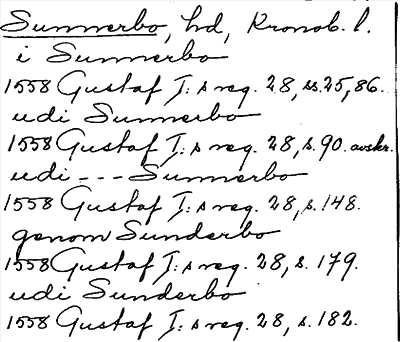 Sunnerbo, hd, Kronob. l.
i Sunnerbo
1558 Gustaf I:s reg. 28, ss. 25, 86.
udi Sunnerbo
1558 Gustaf I:s reg. 28, s. 90. avskr.
udi --- Sunnerbo
1558 Gustaf I:s reg. 28, s. 148.
genom Sunderbo
1558 Gustaf I:s reg. 28, s. 179.
udi Sunderbo
1558 Gustaf I:s reg. 28, s. 182.